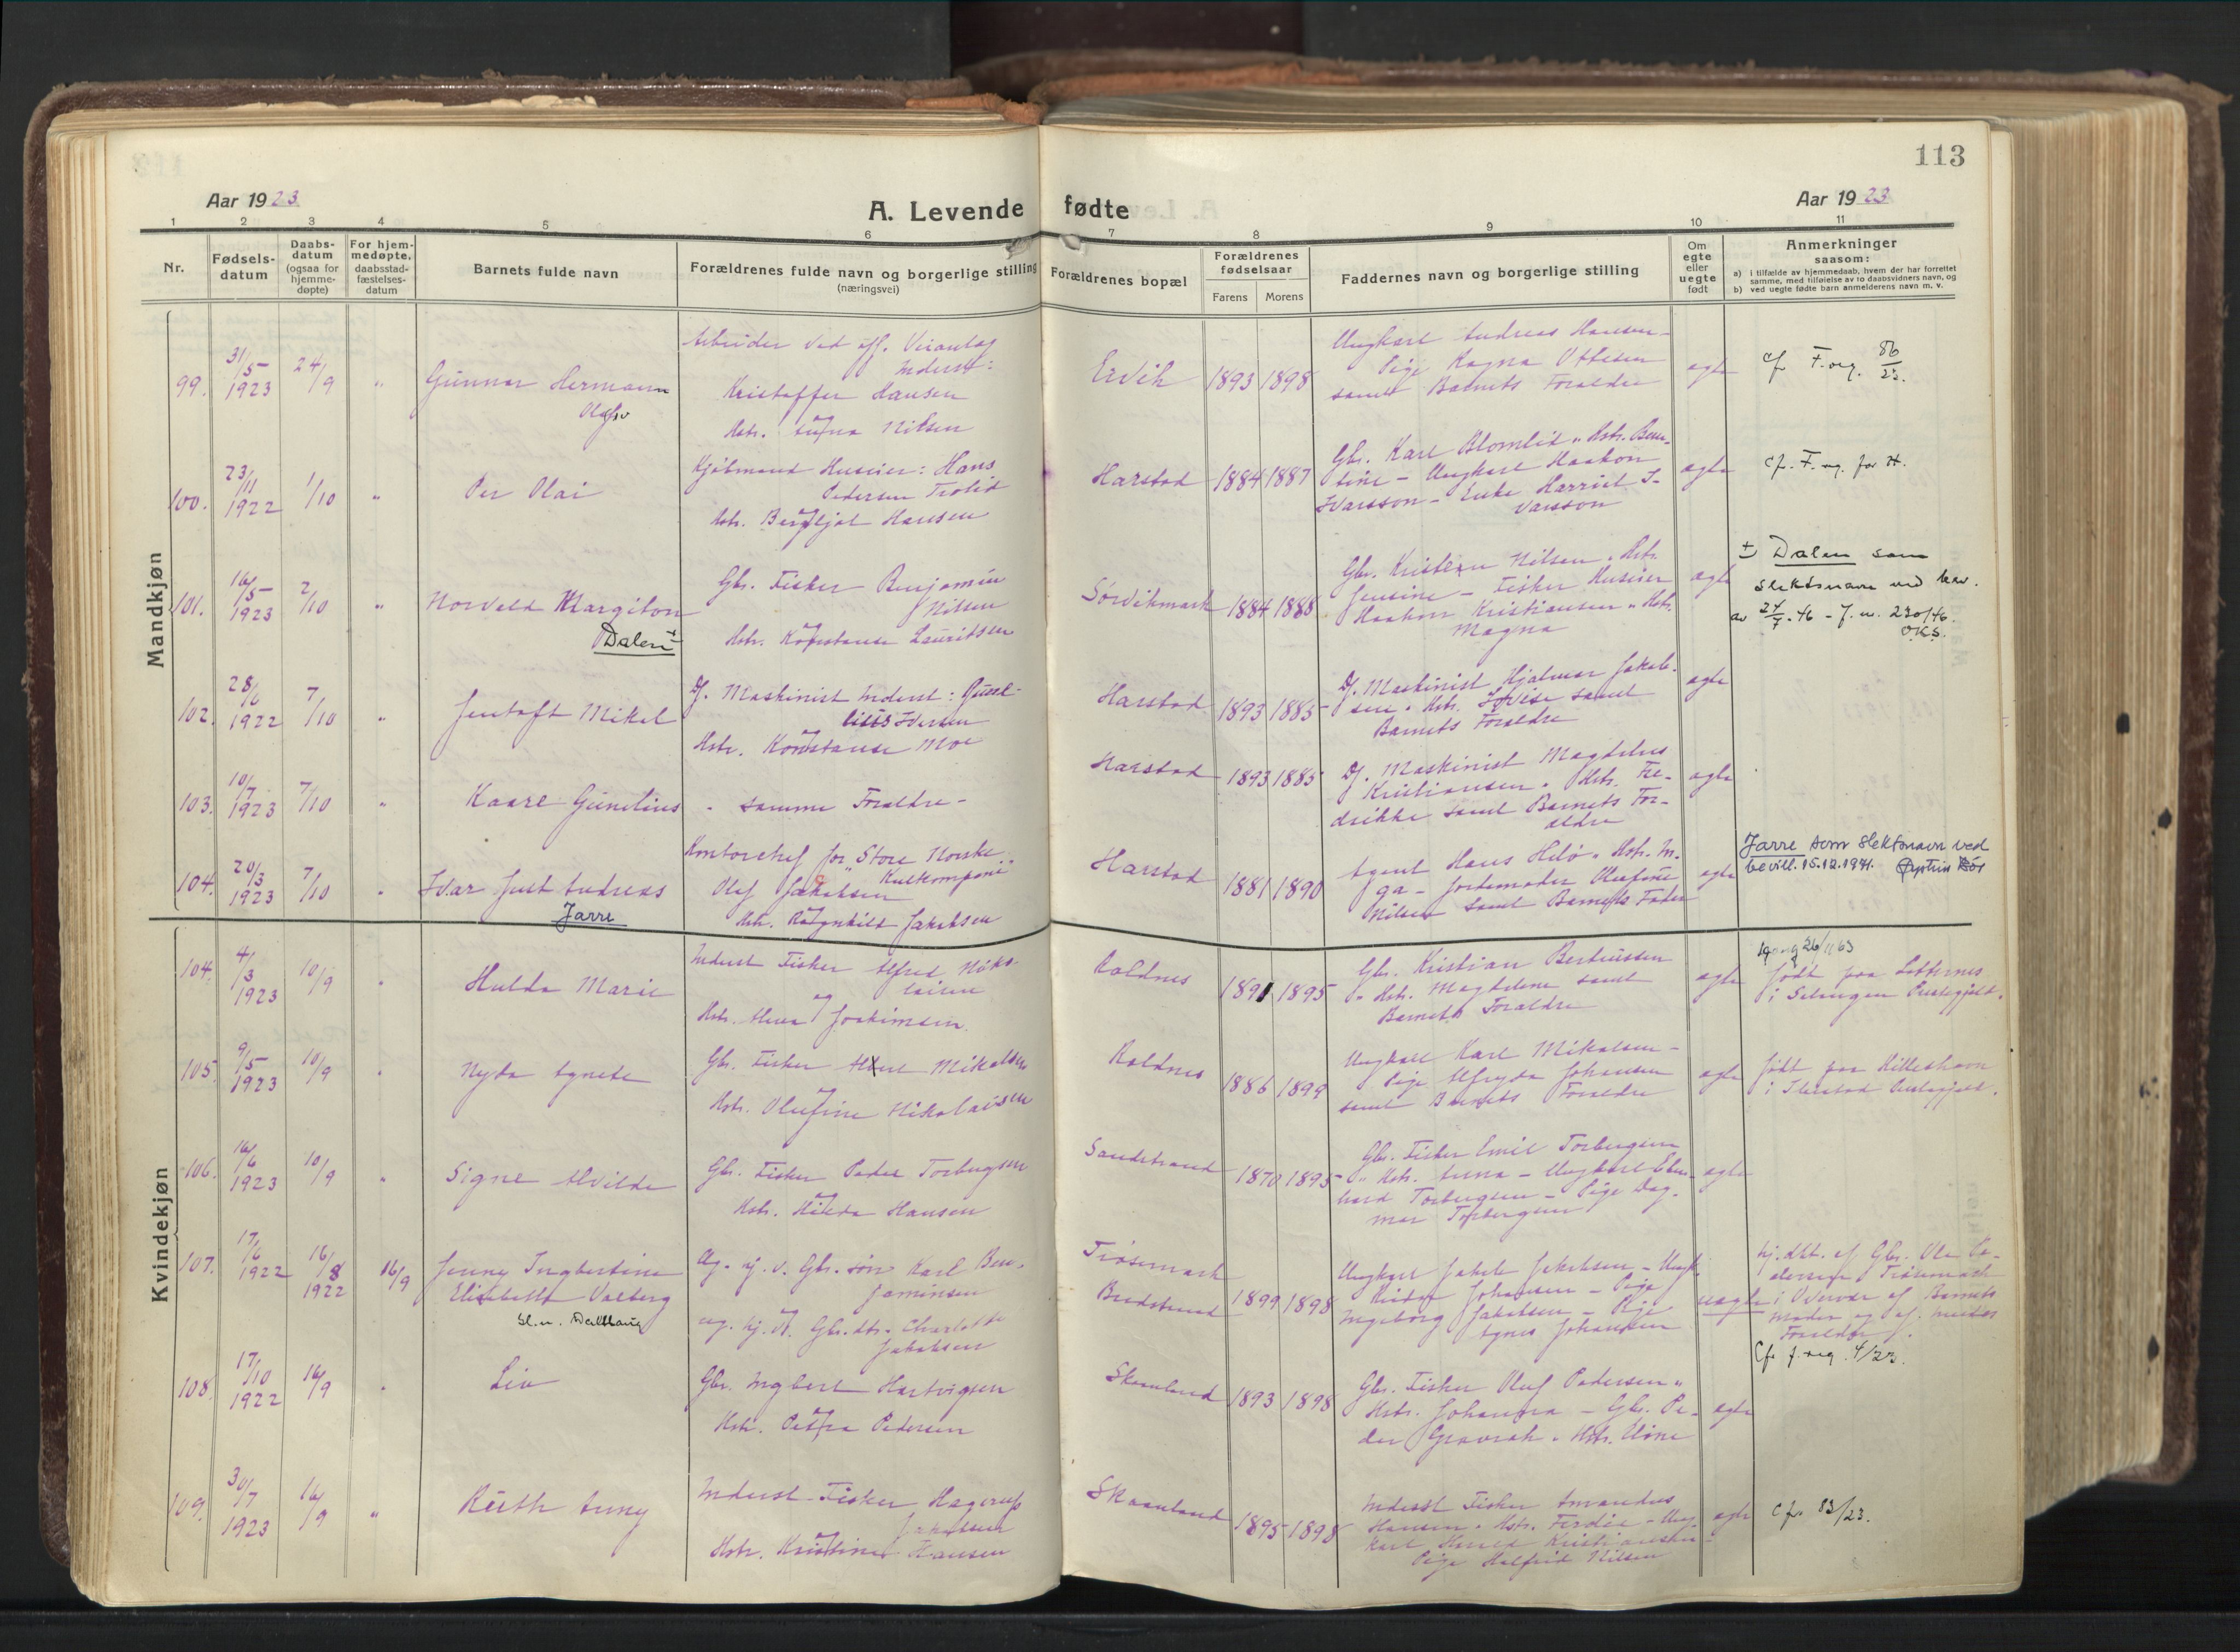 113
Aar 1923
A. Levende fødte
Aar 1923
1 2 3 4 5 6 7 8 9 10 11
Nr.
Fødsels-
datum
Daabs-
datum
(ogsaa for
hjemme-
døpte)
For hjem-
medøpte,
daabsstad-
fæstelses-
datum
Barnets fulde navn
Forældrenes fulde navn og borgerlige stilling
(næringsvei)
Forældrenes bopæl
Forældrenes
fødselsaar
Farens
Morens
Faddernes navn og borgerlige stilling
Om
egte
eller
uegte
født
Anmerkninger
saasom:
a) i tilfælde av hjemmedaab, hvem der har forrettet
samme, med tilføielse av to daabsvidners navn, og
b) ved uegte fødte barn anmelderens navn m. v.
Mandkjøn
99.
31/5
1923
24/9
"
Gunnar Hermann
Olav
Arbeider ved
Inderst:
Kristoffer Hansen
og
Hstr. Anna Nilsen
Ervik
1893
1898
Ungkarl Andreas Hansen -
Pige Ragna Ottesen
samt Barnets Forældre
egte
cf. F. reg. 86/23.
100.
23/11
1922
1/10
"
Per Olai
Kjøbmand Huseier: Hans
Pedersen Trolid
og
Hstr. Bergljot Hansen
Harstad
1884
1887
Gbr. Karl Blomlid " Hstr. Ben-
tine - Ungkarl Haakon
Ivarsson - Enke Harriet I-
varsson
egte
cf. F. reg. for H.
101.
16/5
1923
2/10
"
Norvald Margiton
Dalen ±
Gbr. Fisker Benjamin
Nilsen
og
Hstr. Konstanse Lauritsen
Sørvikmark
1884
1888
Gbr. Kristian Nilsen " Hstr.
Jensine - Fisker Huseier
Haakon Kristiansen " Hstr.
Magna
egte
± Dalen som
slektsnavn ved bev.
av 24/7 46 - J. nr. 230/46.
O.K.S.
102.
28/6
1922
7/10
"
Jentoft Mikal
Df. Maskinist Inderst: Gunel-
lius Iversen
og
Hstr. Konstanse Moe
Harstad
1893
1885
Df. Maskinist Hjalmar Jakob-
sen " Hstr. Lovise samt
Barnets Forældre
egte
103.
10/7
1923
7/10
"
Kaare Gunelius
- samme Forældre -
Harstad
1893
1885
Df. Maskinist Magdelus
Kristiansen " Hstr. Fre-
drikke samt Barnets For-
ældre
egte
104.
20/3
1923
7/10
"
Ivar Just Andreas
Jarre
Kontorchef for "Store Norske
Kulkompani"
Olaf Jakobsen
og
Hstr. Ragnhild Jakobsen
Harstad
1881
1890
Agent Hans Helø " Hstr. In-
ga - Jordemoder Oleofine
Nilsen samt Barnets Fader
egte
Jarre som slektsnavn ved
bevill. 15.12.1941. Øystein
Kvindekjøn
104.
4/3
1923
10/9
"
Hulda Marie
Inderst Fisker Alfred Niko-
laisen
og
Hstr. Anna Joakimsen
Roldnes
1891
1895
Gbr. Kristian Berteussen
" Hstr. Magdelene samt
Barnets Forældre
egte
26/11 63
født paa
i Salangen Prestegjeld.
105.
9/5
1923
10/9
"
Nyda Agnete
Gbr. Fisker Mikalsen
og
Hstr. Olufine Nikolaisen
Roldnes
1886
1899
Ungkarl Karl Mikalsen -
Pige Alfryda Johansen
samt Barnets Forældre
egte
født paa
i Ibestad Prestegjeld.
106.
16/6
1923
10/9
"
Signe Alvilde
Gbr. Fisker Peder Torbergsen
og
Hstr. Hilda Hansen
Sandstrand
1870
1895
Gbr. Fisker Emil Torbergsen
" Hstr. Anna - Ungkarl Eben-
hard Torbergsen - Pige Dag-
mar Torbergsen
egte
107.
17/6
1922
16/8
1922
16/9
Jenny Ingbertine
Elisabeth Valberg
Sl.n. Dalhaug
Ug. hj. v. Gbr. søn Karl Ben-
jaminsen
og
ug. hj. v. Gbr. dtr. Charlotte
Jakobsen
Trøsemark
Bredstrand
1899
1898
Ungkarl Jakob Jakobsen - Ungk.
Johansen - Pige
Ingeborg Jakobsen - Pige
Agnes Johansen
uegte
hj. dbt. af Gbr. Ole Pe-
dersen Trøsemark
i Overvær af Barnets
moder og af hendes
Forældre.
Cfr. f. reg. 4/23.
108.
17/10
1922
16/9
"
Liv
Gbr. Ingbert Hartvigsen
og
Hstr. Petra Pedersen
Skaanland
1893
1898
Gbr. Fisker Oluf Pedersen "
Hstr. Johanna - Gbr. Pe-
der Gravrok " Hstr. Eline
egte
109.
30/7
1923
16/9
"
Ruth Anny
Inderst Fisker Hagerup
Jakobsen
og
Hstr. Kristine Hansen
Skaanland
1895
1898
Inderst Fisker Amandus
Hansen " Hstr. - Ung-
karl Harald Kristiansen -
Pige Halfrid Nilsen
egte
Cfr. 83/23.